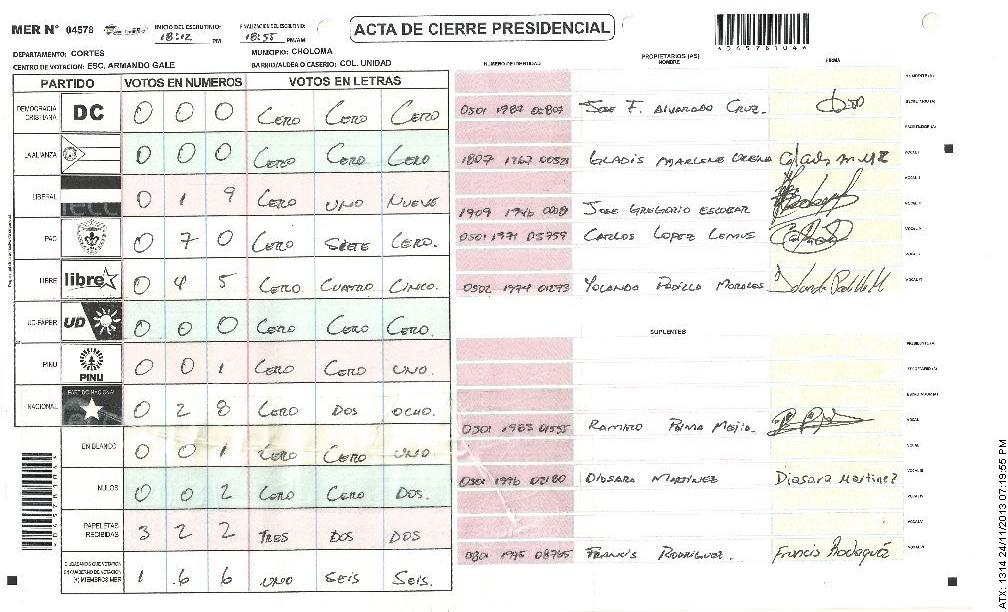 MER N° 04578
INICIO DEL ESCRUTINIO: 18:12 PM
FINALIZACION DEL ESCRUTINIO: 18:55 PM/AM
ACTA DE CIERRE PRESIDENCIAL
DEPARTAMENTO: CORTES
MUNICIPIO: CHOLOMA
CENTRO DE VOTACION: ESC. ARMANDO GALE
BARRIO/ALDEA O CASERIO: COL. UNIDAD
PARTIDO VOTOS EN NUMEROS VOTOS EN LETRAS
DEMOCRACIA CRISTIANA DC 0 0 0 CERO CERO CERO
LA ALIANZA 0 0 0 CERO CERO CERO
LIBERAL 0 1 9 CERO UNO NUEVE
PAC 0 7 0 CERO SIETE CERO.
LIBRE libre 0 4 5 CERO CUATRO CINCO.
UD-FAPER UD 0 0 0 CERO CERO CERO.
PINU PINU 0 0 1 CERO CERO UNO.
NACIONAL PARTIDO NACIONAL 0 2 8 CERO DOS OCHO.
EN BLANCO 0 0 1 CERO CERO UNO.
NULOS 0 0 2 CERO CERO DOS.
PAPELETAS RECIBIDAS 3 2 2 TRES DOS DOS
CIUDADANOS QUE VOTARON EN CUADERNO DE VOTACION (+) MIEMBROS MER 1 6 6 UNO SEIS SEIS.
NUMERO DE IDENTIDAD PROPIETARIOS (AS) NOMBRE FIRMA
JOSE F. ALVARADO CRUZ.
GLADIS MARLENE
JOSE GREGORIO ESCOBAR
CARLOS LOPEZ LEMUS
0502 1974 01273 YOLANDA PADILLA MORALES
SUPLENTES
0501 1983 01555 RAMIRO PALMA MEJIA.
DIOSARA MARTINEZ Diosara Martinez
FRANCIS RODRIGUEZ. Francis Rodriguez
ATX: 1314 24/11/2013 07:19:55 PM